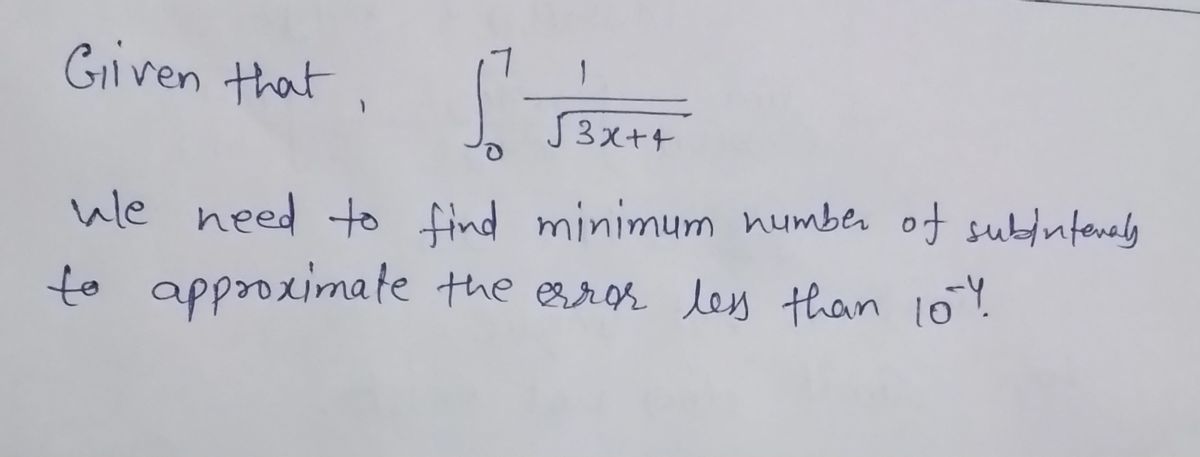 Given that, ∫₀⁷ 1/√3x+4
We need to find minimum number of subintervals
to approximate the error less than 10⁻⁴.